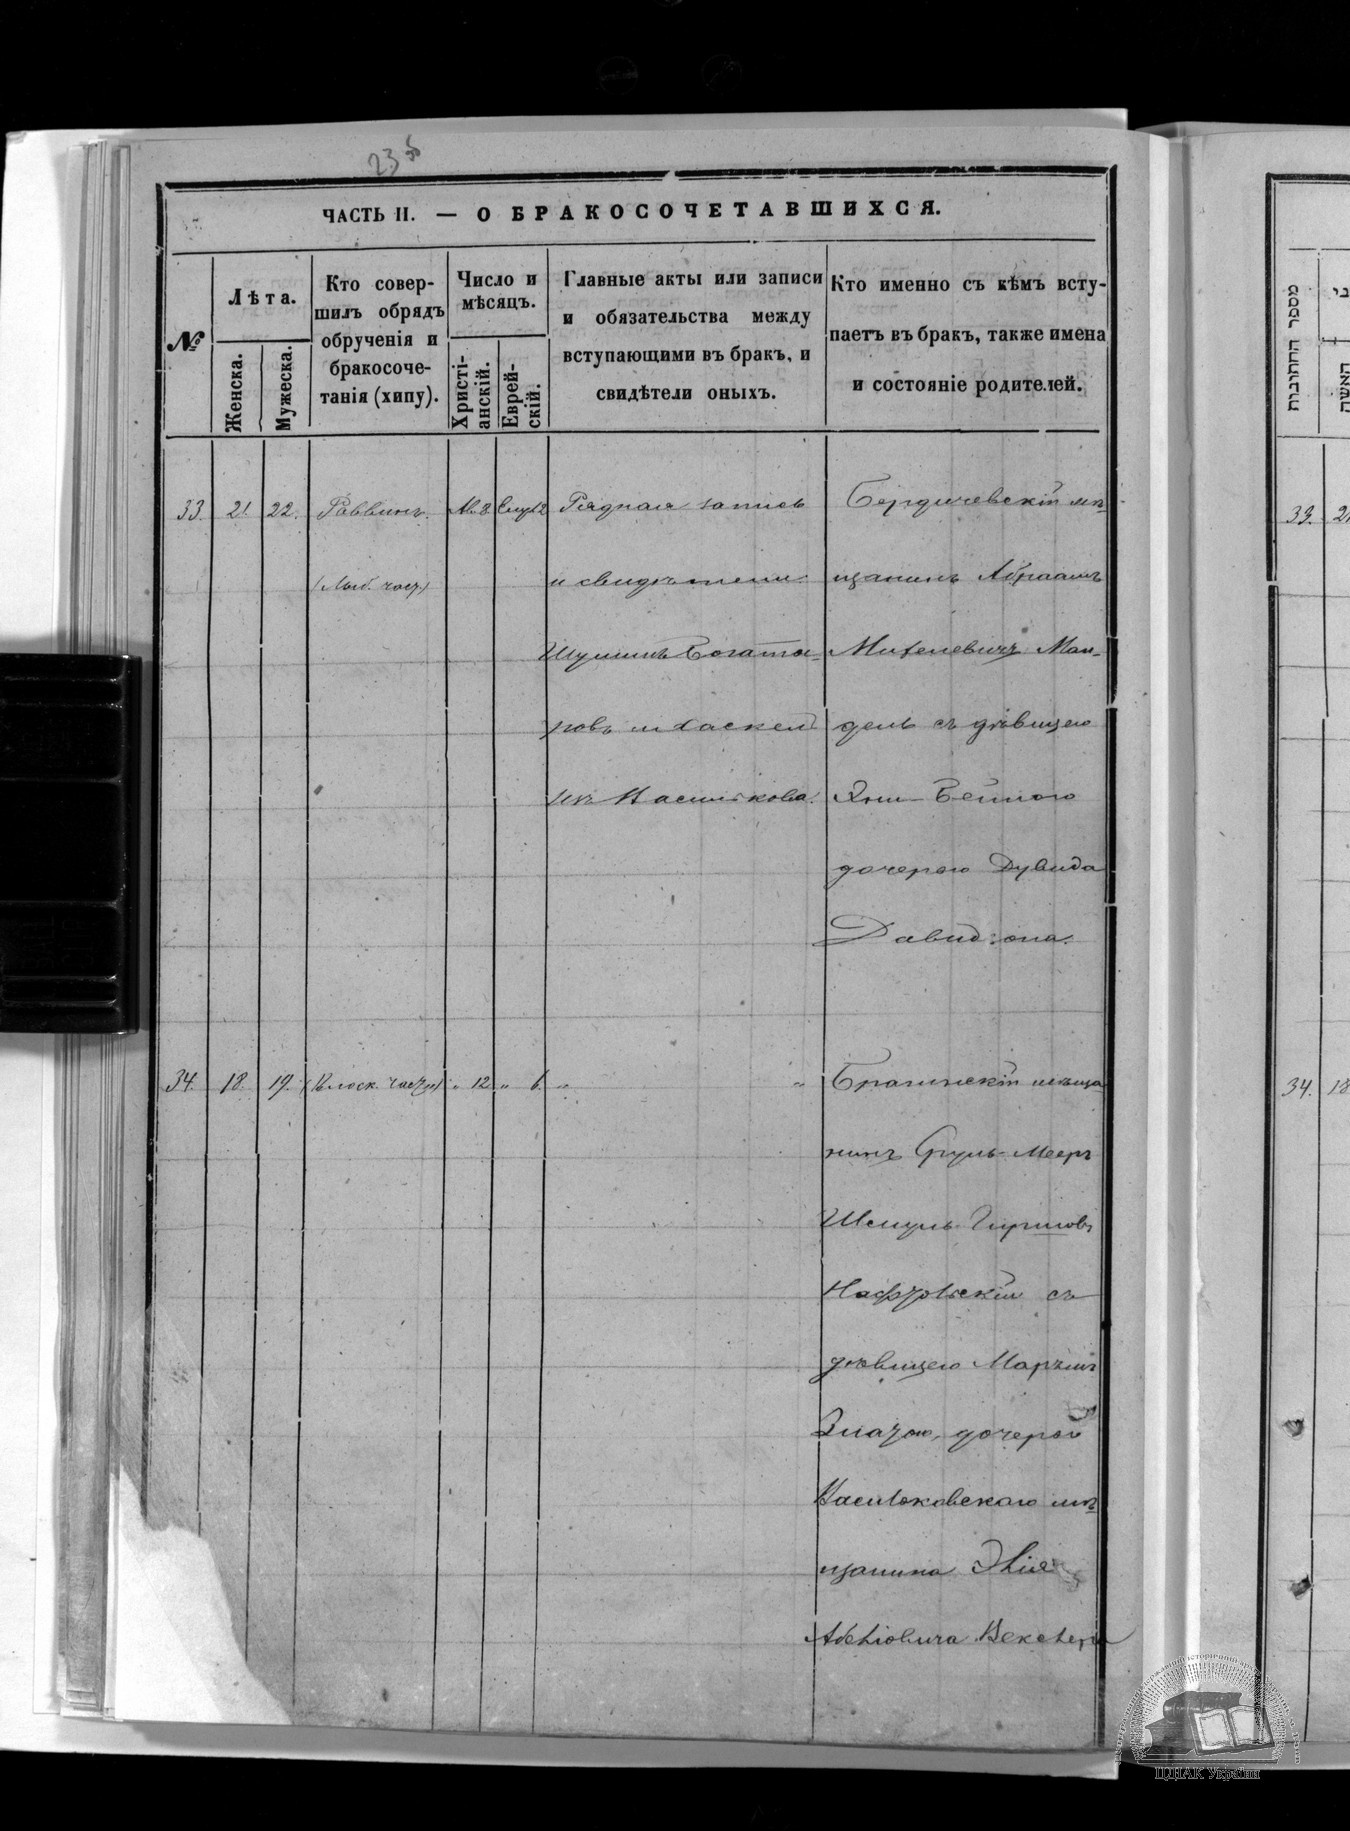 23 об
ЧАСТЬ II. — О БРАКОСОЧЕТАВШИХСЯ.
№
Лѣта.
Женска.
Мужеска.
Кто совер-
шилъ обрядъ
обрученія и
бракосоче-
танія (хипу).
Число и
мѣсяцъ.
Христі-
анскій.
Еврей-
скій.
Главные акты или записи
и обязательства между
вступающими въ брак, и
свидѣтели оныхъ.
Кто именно съ кѣмъ всту-
паетъ въ бракъ, также имена
и состояніе родителей.
33. 21 22. Раввинъ. Ав. 8 12 Рядная запись
и свидѣтели:
Богаты-
ровъ и Хаскель
изъ Василькова.
Бердичевскій мѣ-
щанинъ Абраамъ
Михелевичъ Ман-
дель съ дѣвицею
Бейлою
дочерью Дувида
Давидзона.
(Лыб. част.)
34. 18. 19. „ 12 „ 6. „ „
Брагинскій мѣща
нинъ Сруль-Мееръ
Шмуль Гиршовъ
съ
дѣвицею
Златою, дочерью
Васильковскаго мѣ-
щанина
Векслера
מספר החתונות
האשה
33. 21
34. 18
ЦДІАК України